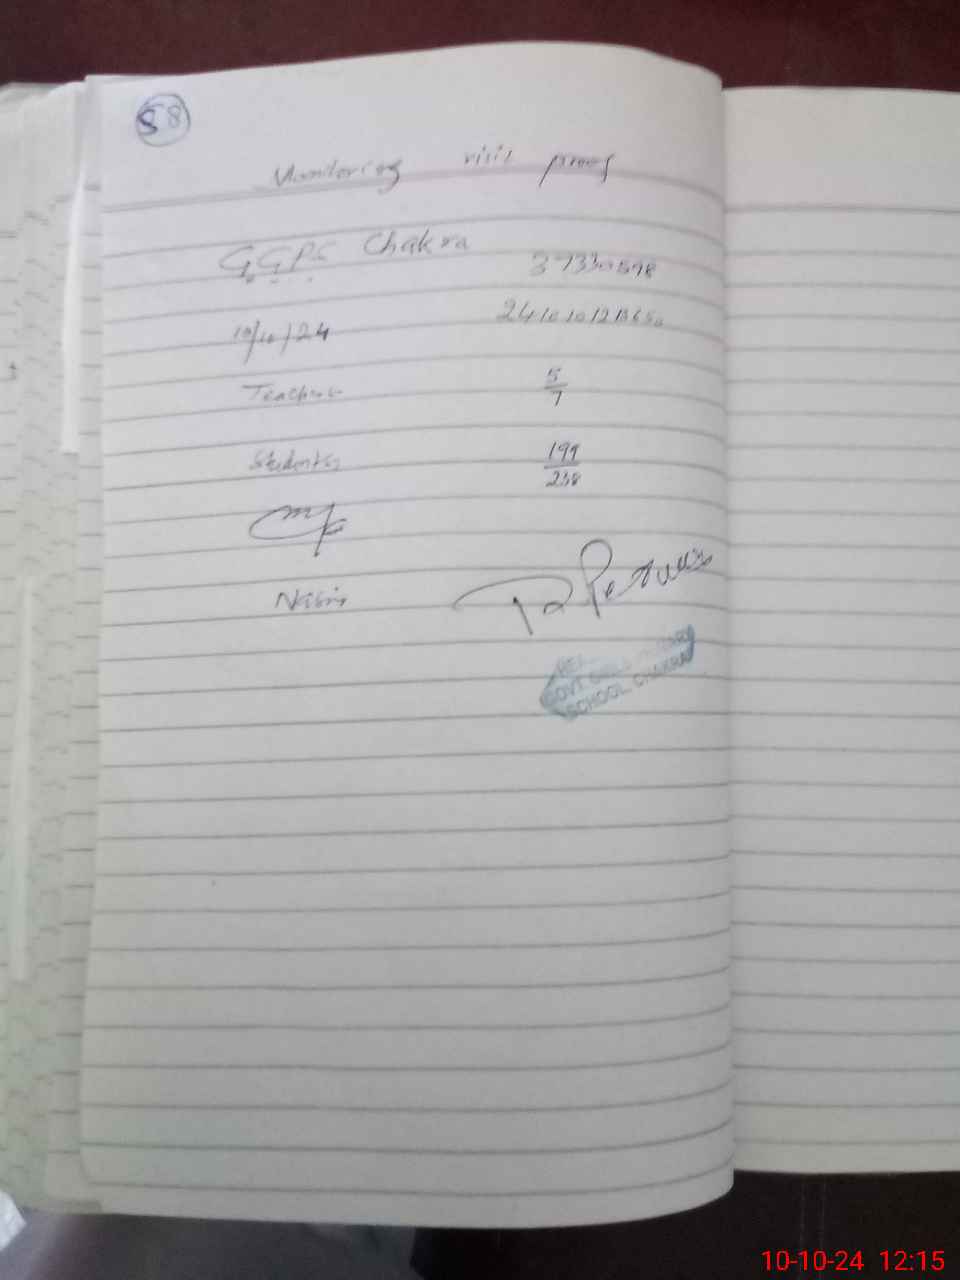 58
Monitoring visit proof
G.G.P.S Chakra
37330598
10/10/24
Teachers
5/7
Students
199/238
GOVT GIRLS PRIMARY
SCHOOL, CHAKRA
10-10-24 12:15